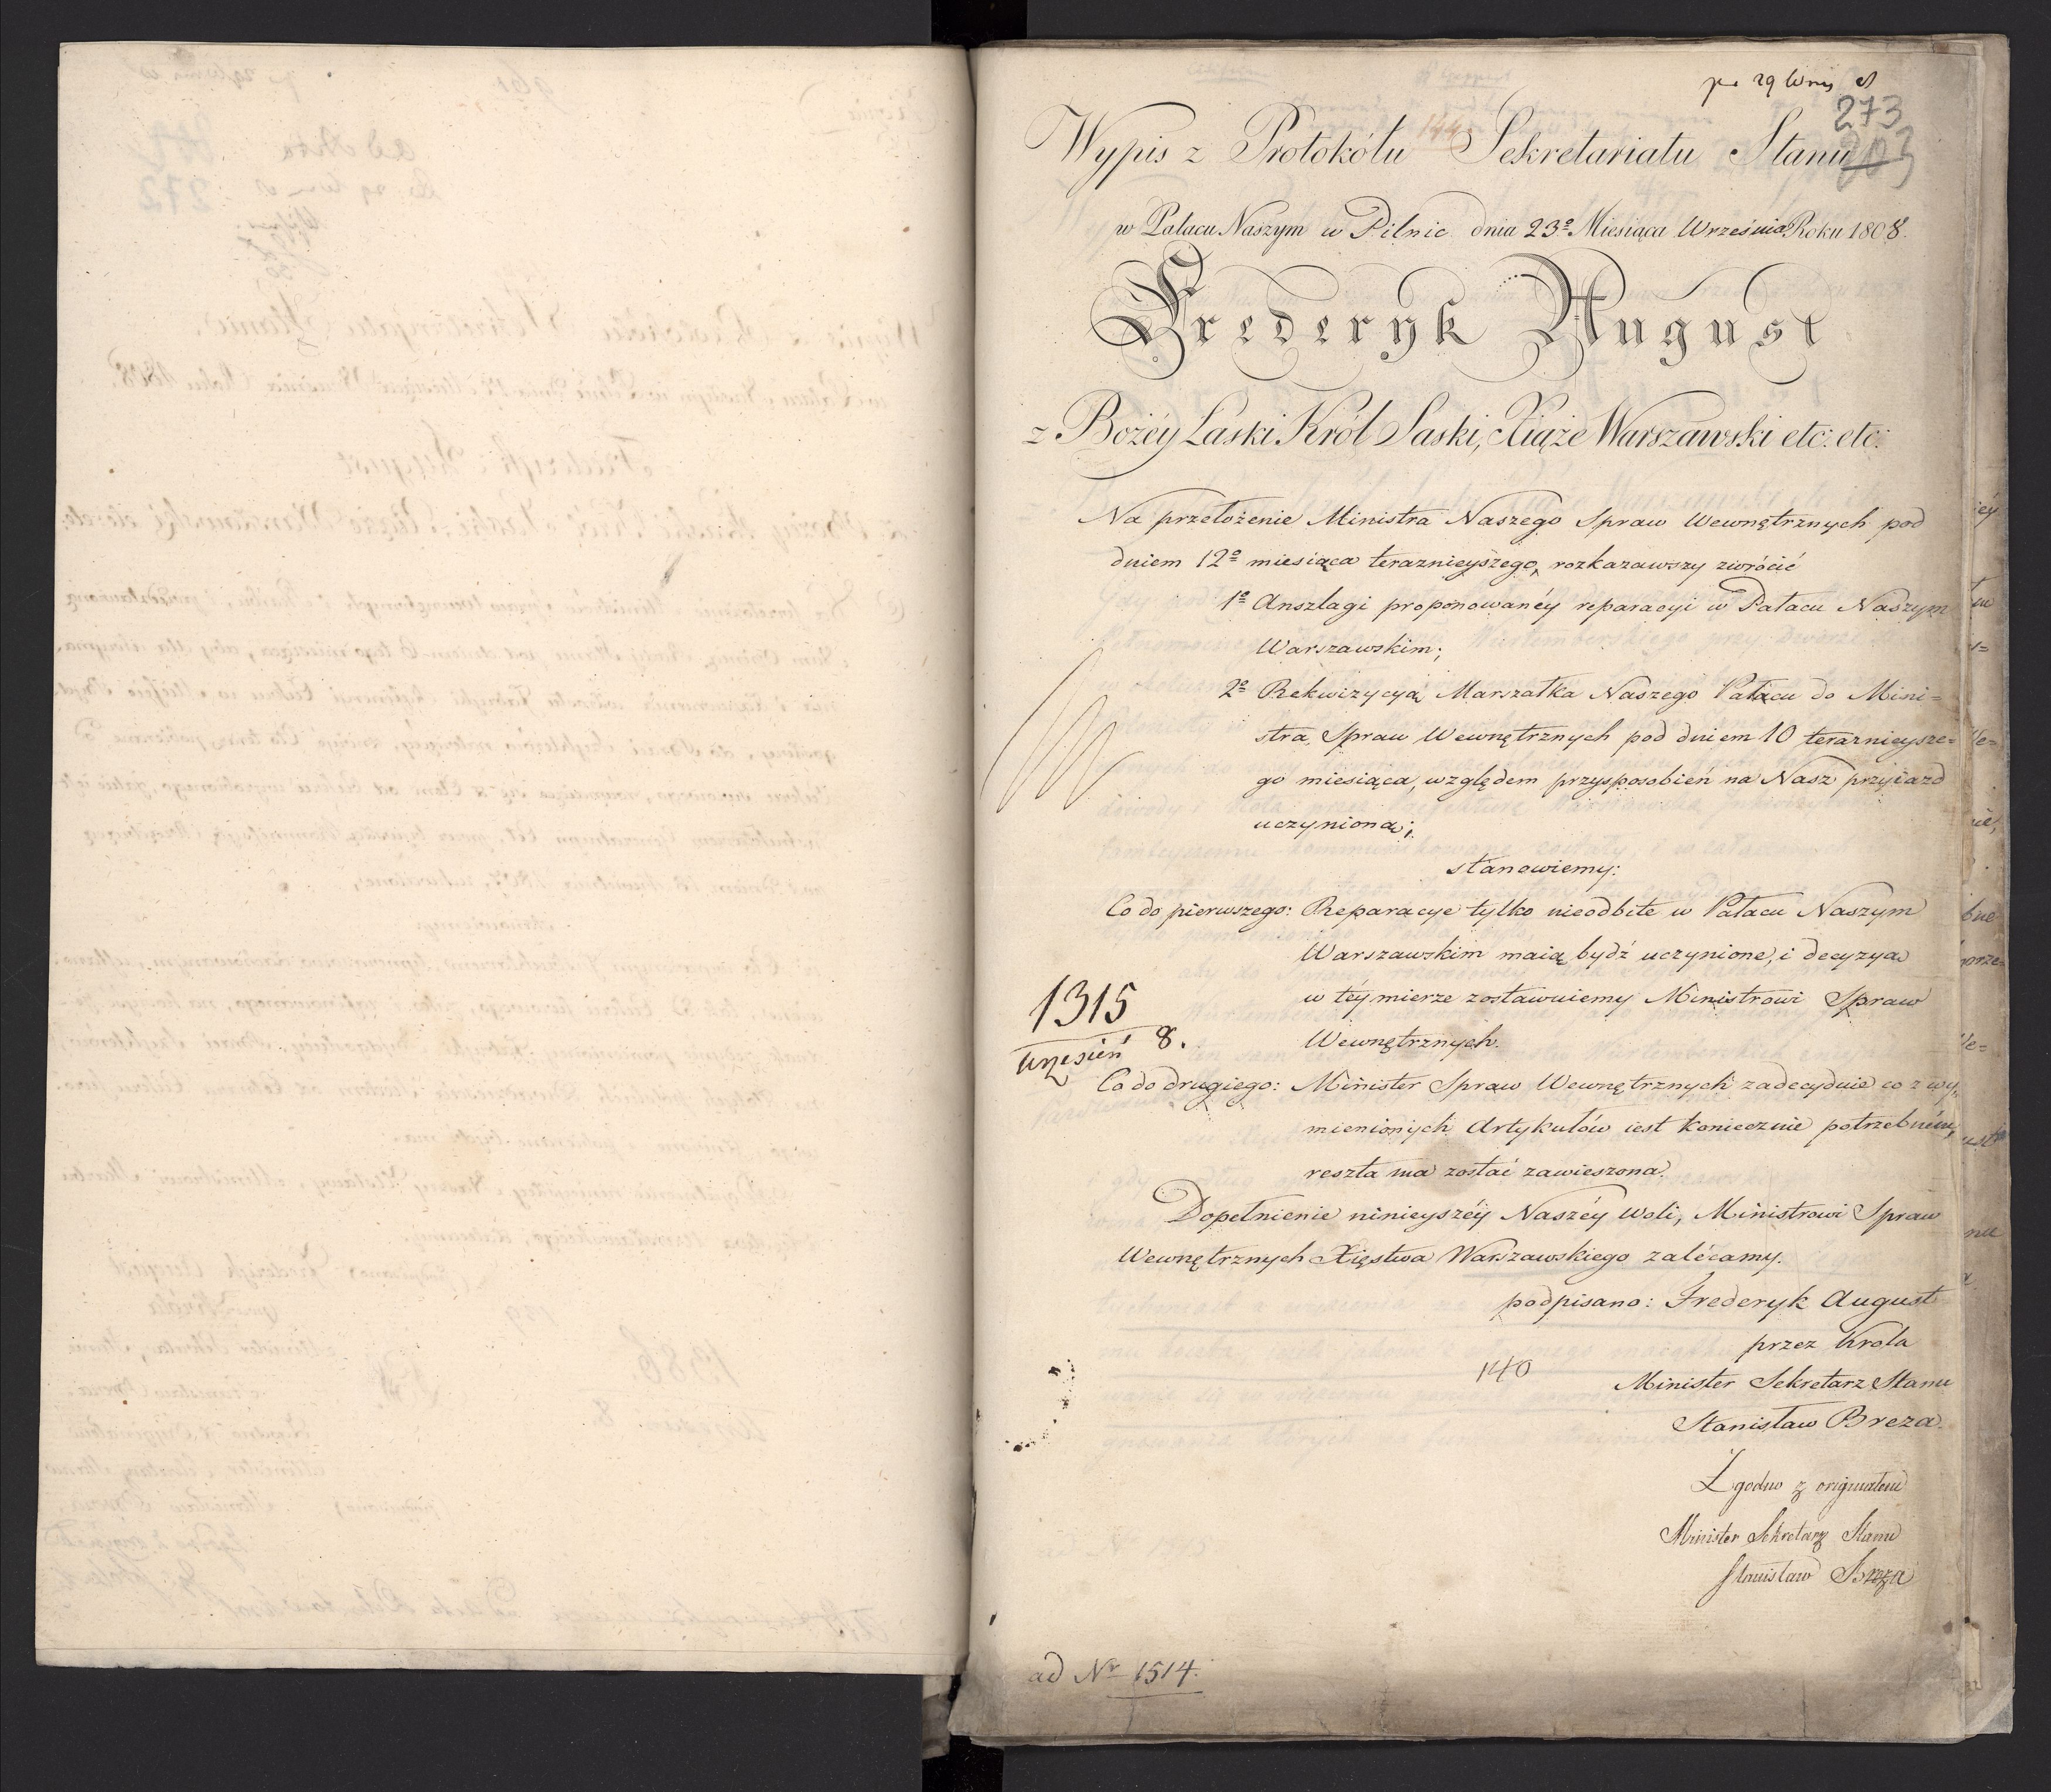 273
Wypis z Protokółu Sekretariatu Stanu
w Pałacu Naszym w Pilnic dnia 23º Miesiąca Września Roku 1808.
Frederyk August
z Bożéy Łaski Król Saski, Xiąże Warszawski etc: etc:
Na przełożenie Ministra Naszego Spraw Wewnętrznych pod
dniem 12º miesiąca teraznieyszego, rozkazawszy zwrócić
1º Anszlagi proponowanéy reparacyi w Pałacu Naszym
Warszawskim;
2º Rekwizycyą Marszałka Naszego Pałacu do Mini=
stra Spraw Wewnętrznych pod dniem 10 teraznieysze=
go miesiąca, względem przysposobień na Nasz przyiazd
uczynioną;
stanowiemy:
Co do pierwszego: Reparacye tylko nieodbite w Pałacu Naszym
Warszawskim maią bydź uczynione, i decyzyą
w téy mierze zostawuiemy Ministrowi Spraw
Wewnętrznych.
1315
Wrzesień 8.
Co do drugiego: Minister Spraw Wewnętrznych zadecyduie co z wy=
mienionych Artykułów iest koniecznie potrzebném,
reszta ma zostać zawieszona.
Dopełnienie ninieyszéy Naszéy Woli, Ministrowi Spraw
Wewnętrznych Xięstwa Warszawskiego zalécamy.
podpisano: Frederyk August
przez Króla
140
Minister Sekretarz Stanu
Stanisław Breza.
Zgodno z originałem
Minister Sekretarz Stanu
Stanisław Breza
ad Nr 1514.